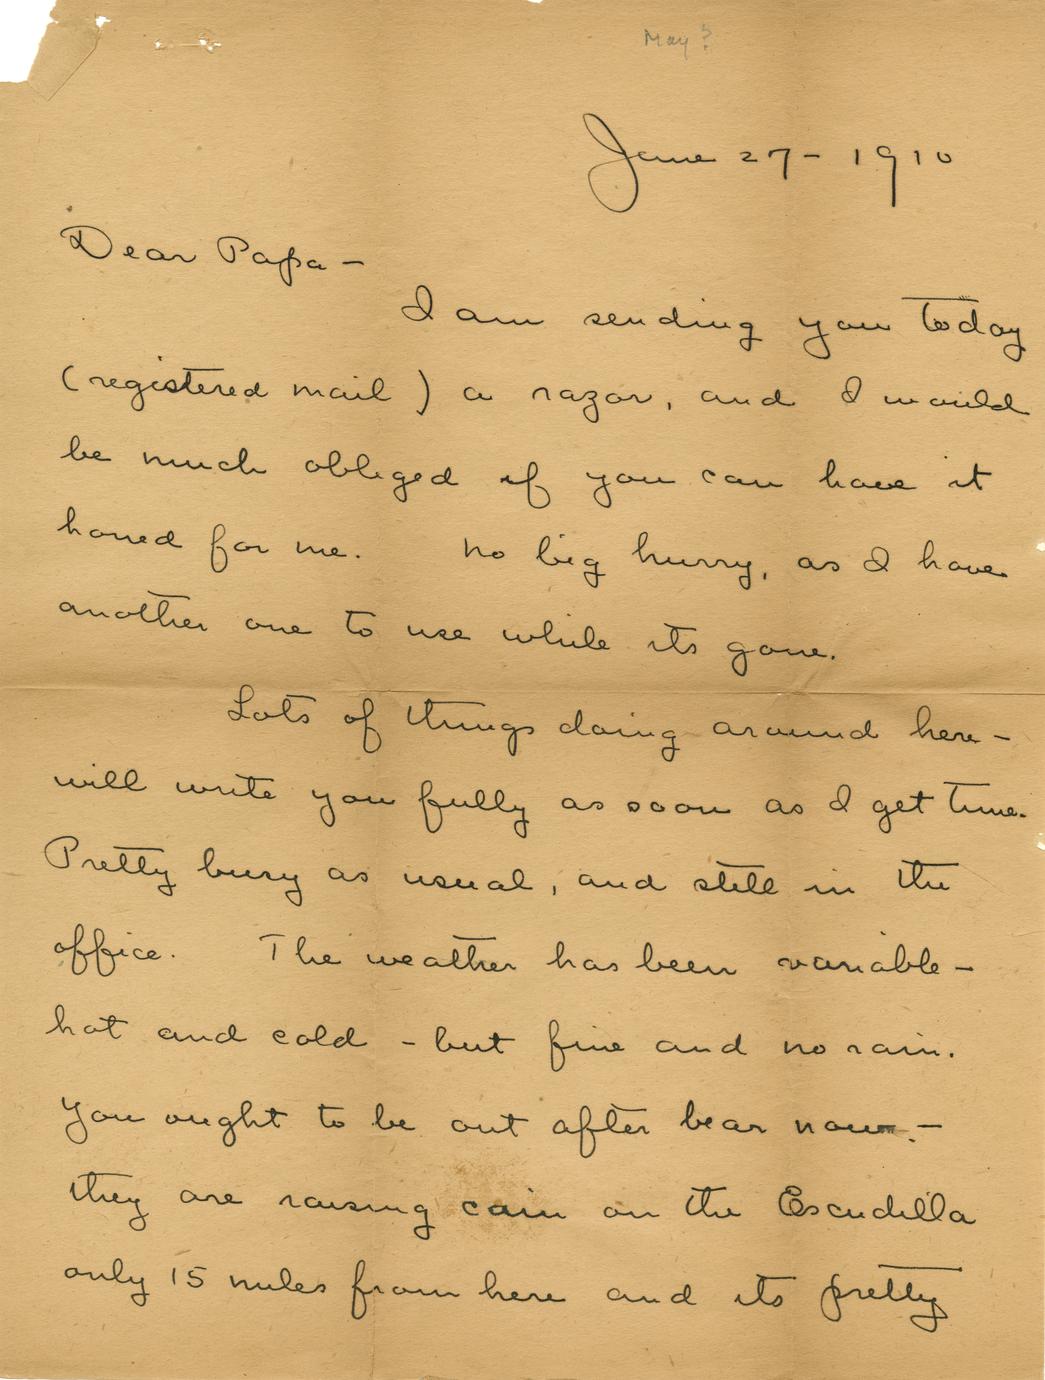 May?
June 27 - 1910
Dear Papa -
I am sending you today
(registered mail) a razor, and I would
be much obliged if you can have it
honed for me. No big hurry, as I have
another one to use while its gone.
Lots of things doing around here -
will write you fully as soon as I get time.
Pretty busy as usual, and still in the
office. The weather has been variable -
hot and cold - but fine and no rain.
You ought to be out after bear now. -
they are raising cain on the Escudilla
only 15 miles from here and its pretty